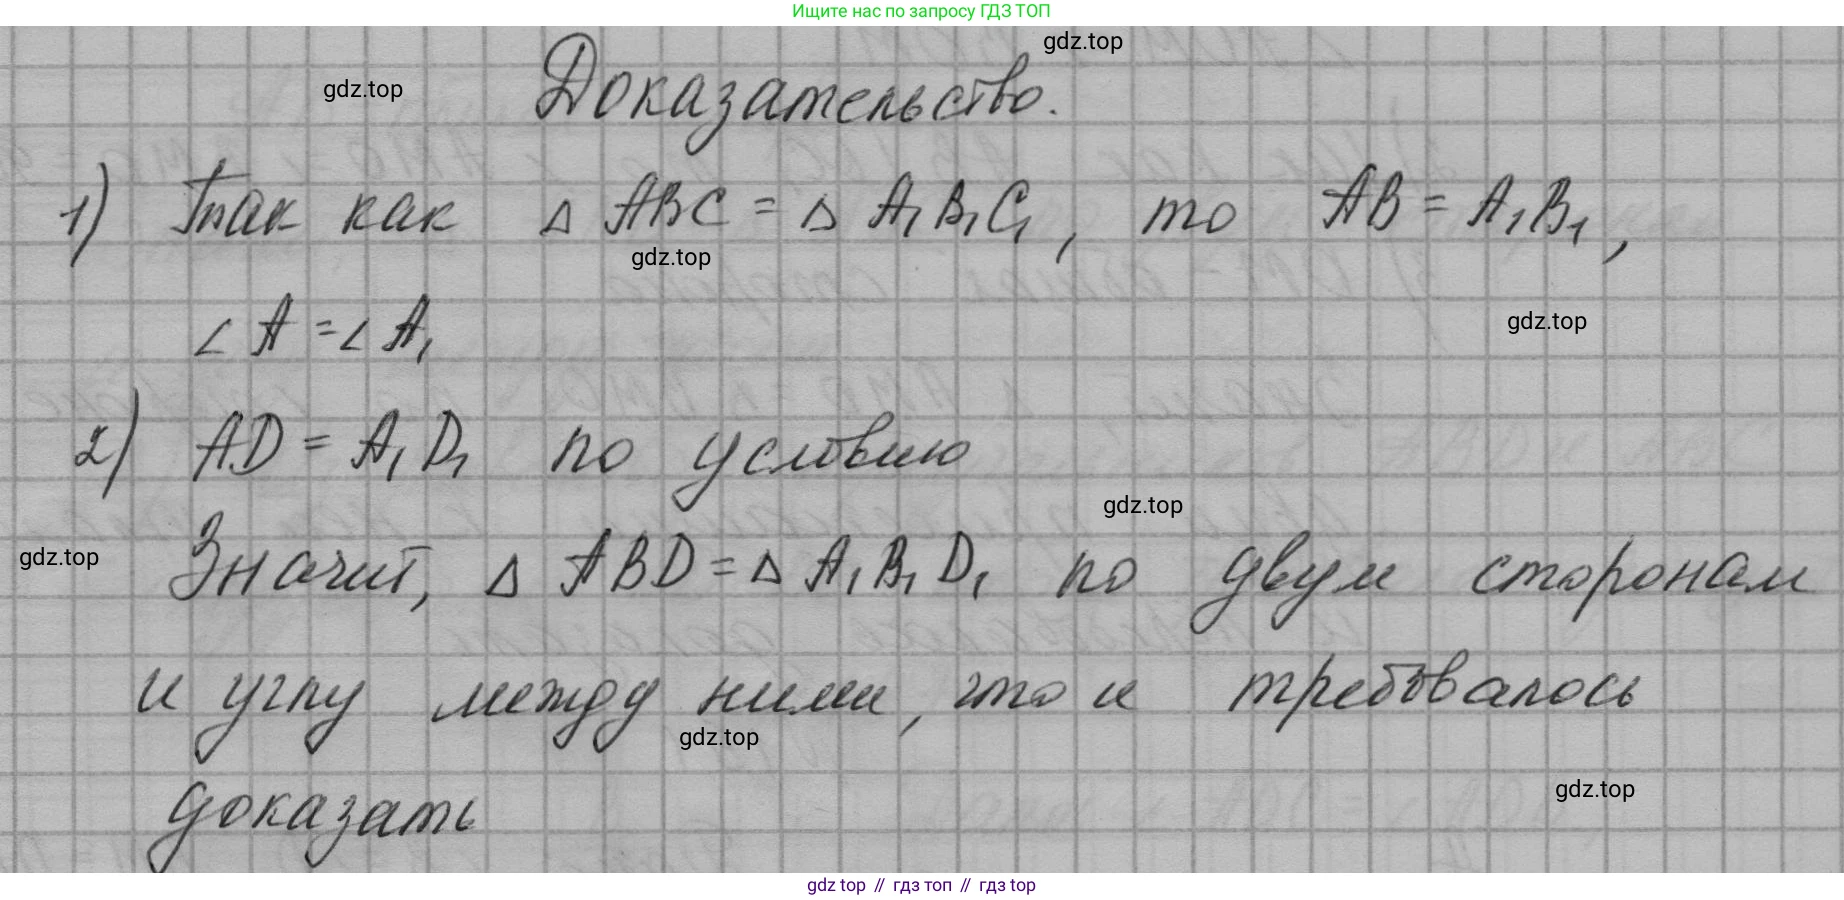 Ищите нас по запросу ГДЗ ТОП
gdz.top
gdz.top
Доказательство.
1) Так как △ ABC = △ A₁B₁C₁, то AB = A₁B₁,
gdz.top
gdz.top
∠A = ∠A₁
2) AD = A₁D₁ по условию
gdz.top
gdz.top
Значит, △ ABD = △ A₁B₁D₁ по двум сторонам
и углу между ними, что и требовалось
gdz.top
gdz.top
доказать
gdz top // гдз топ // гдз top